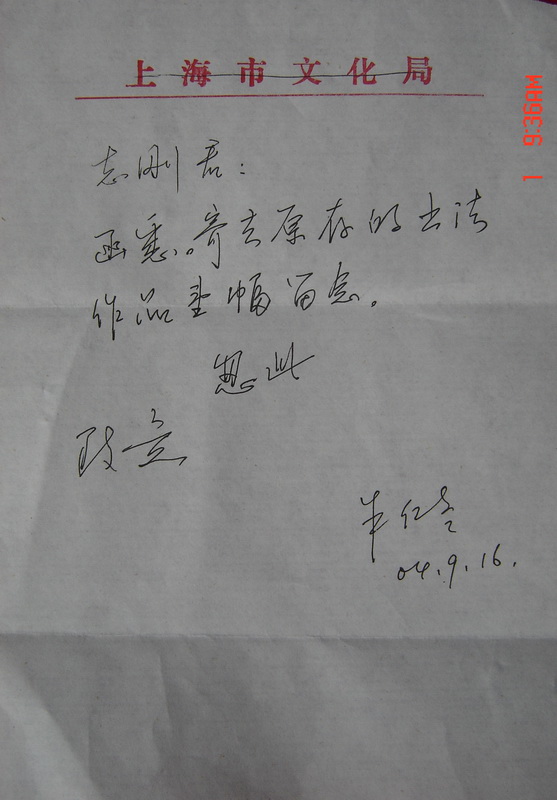 上海市文化局
志刚君：
函悉。寄去原存的书法
作品壹幅留念。
匆此
致意
04.9.16.
1 9:36AM